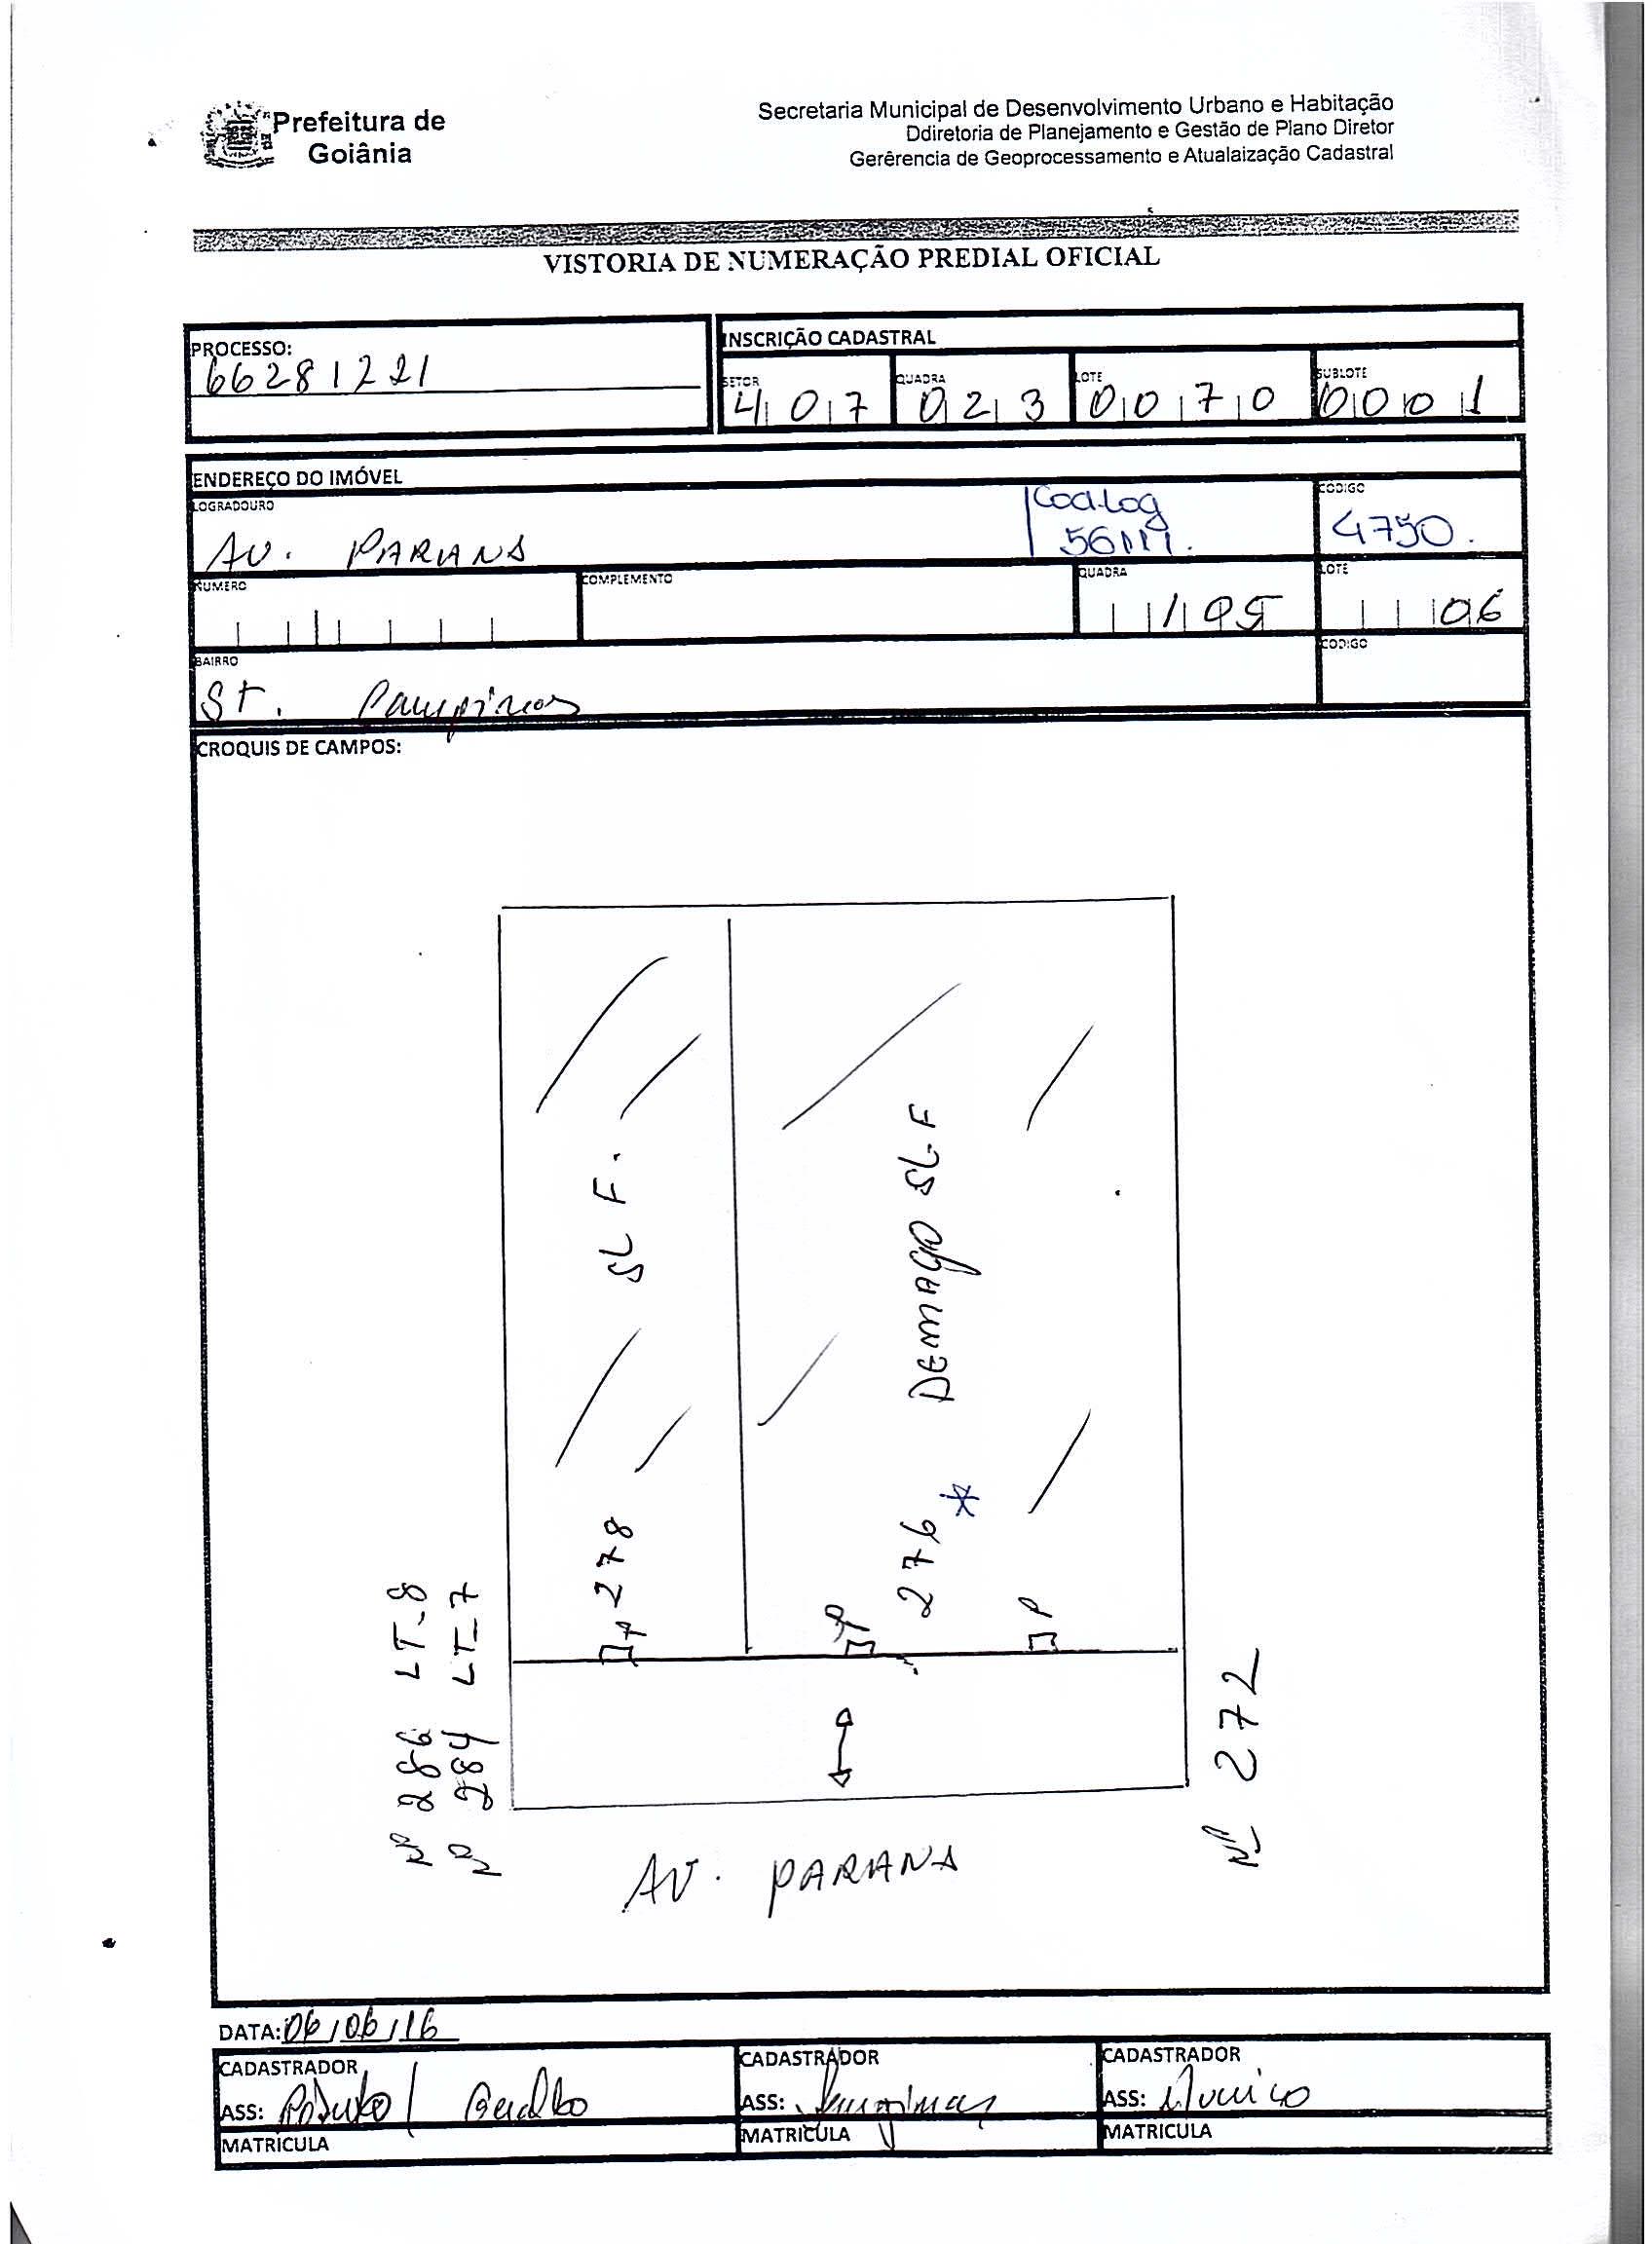 Prefeitura de
Goiânia
Secretaria Municipal de Desenvolvimento Urbano e Habitação
Ddiretoria de Planejamento e Gestão de Plano Diretor
Gerêrencia de Geoprocessamento e Atualaização Cadastral
VISTORIA DE NUMERAÇÃO PREDIAL OFICIAL
PROCESSO:
66281221
INSCRIÇÃO CADASTRAL
SETOR QUADRA LOTE SUBLOTE
407 023 0070 0001
ENDEREÇO DO IMÓVEL
LOGRADOURO CODIGO
AV. PARANA
4750.
NUMERO COMPLEMENTO QUADRA LOTE
105 06
BAIRRO CODIGO
ST. Campinas
CROQUIS DE CAMPOS:
SL F.
SL F
278
276 *
P P P
LT-8
LT-7
Nº 286
Nº 284
Nº 272
AV. PARANA
DATA: 06/06/16
CADASTRADOR CADASTRADOR CADASTRADOR
ASS: ASS: ASS:
MATRICULA MATRICULA MATRICULA